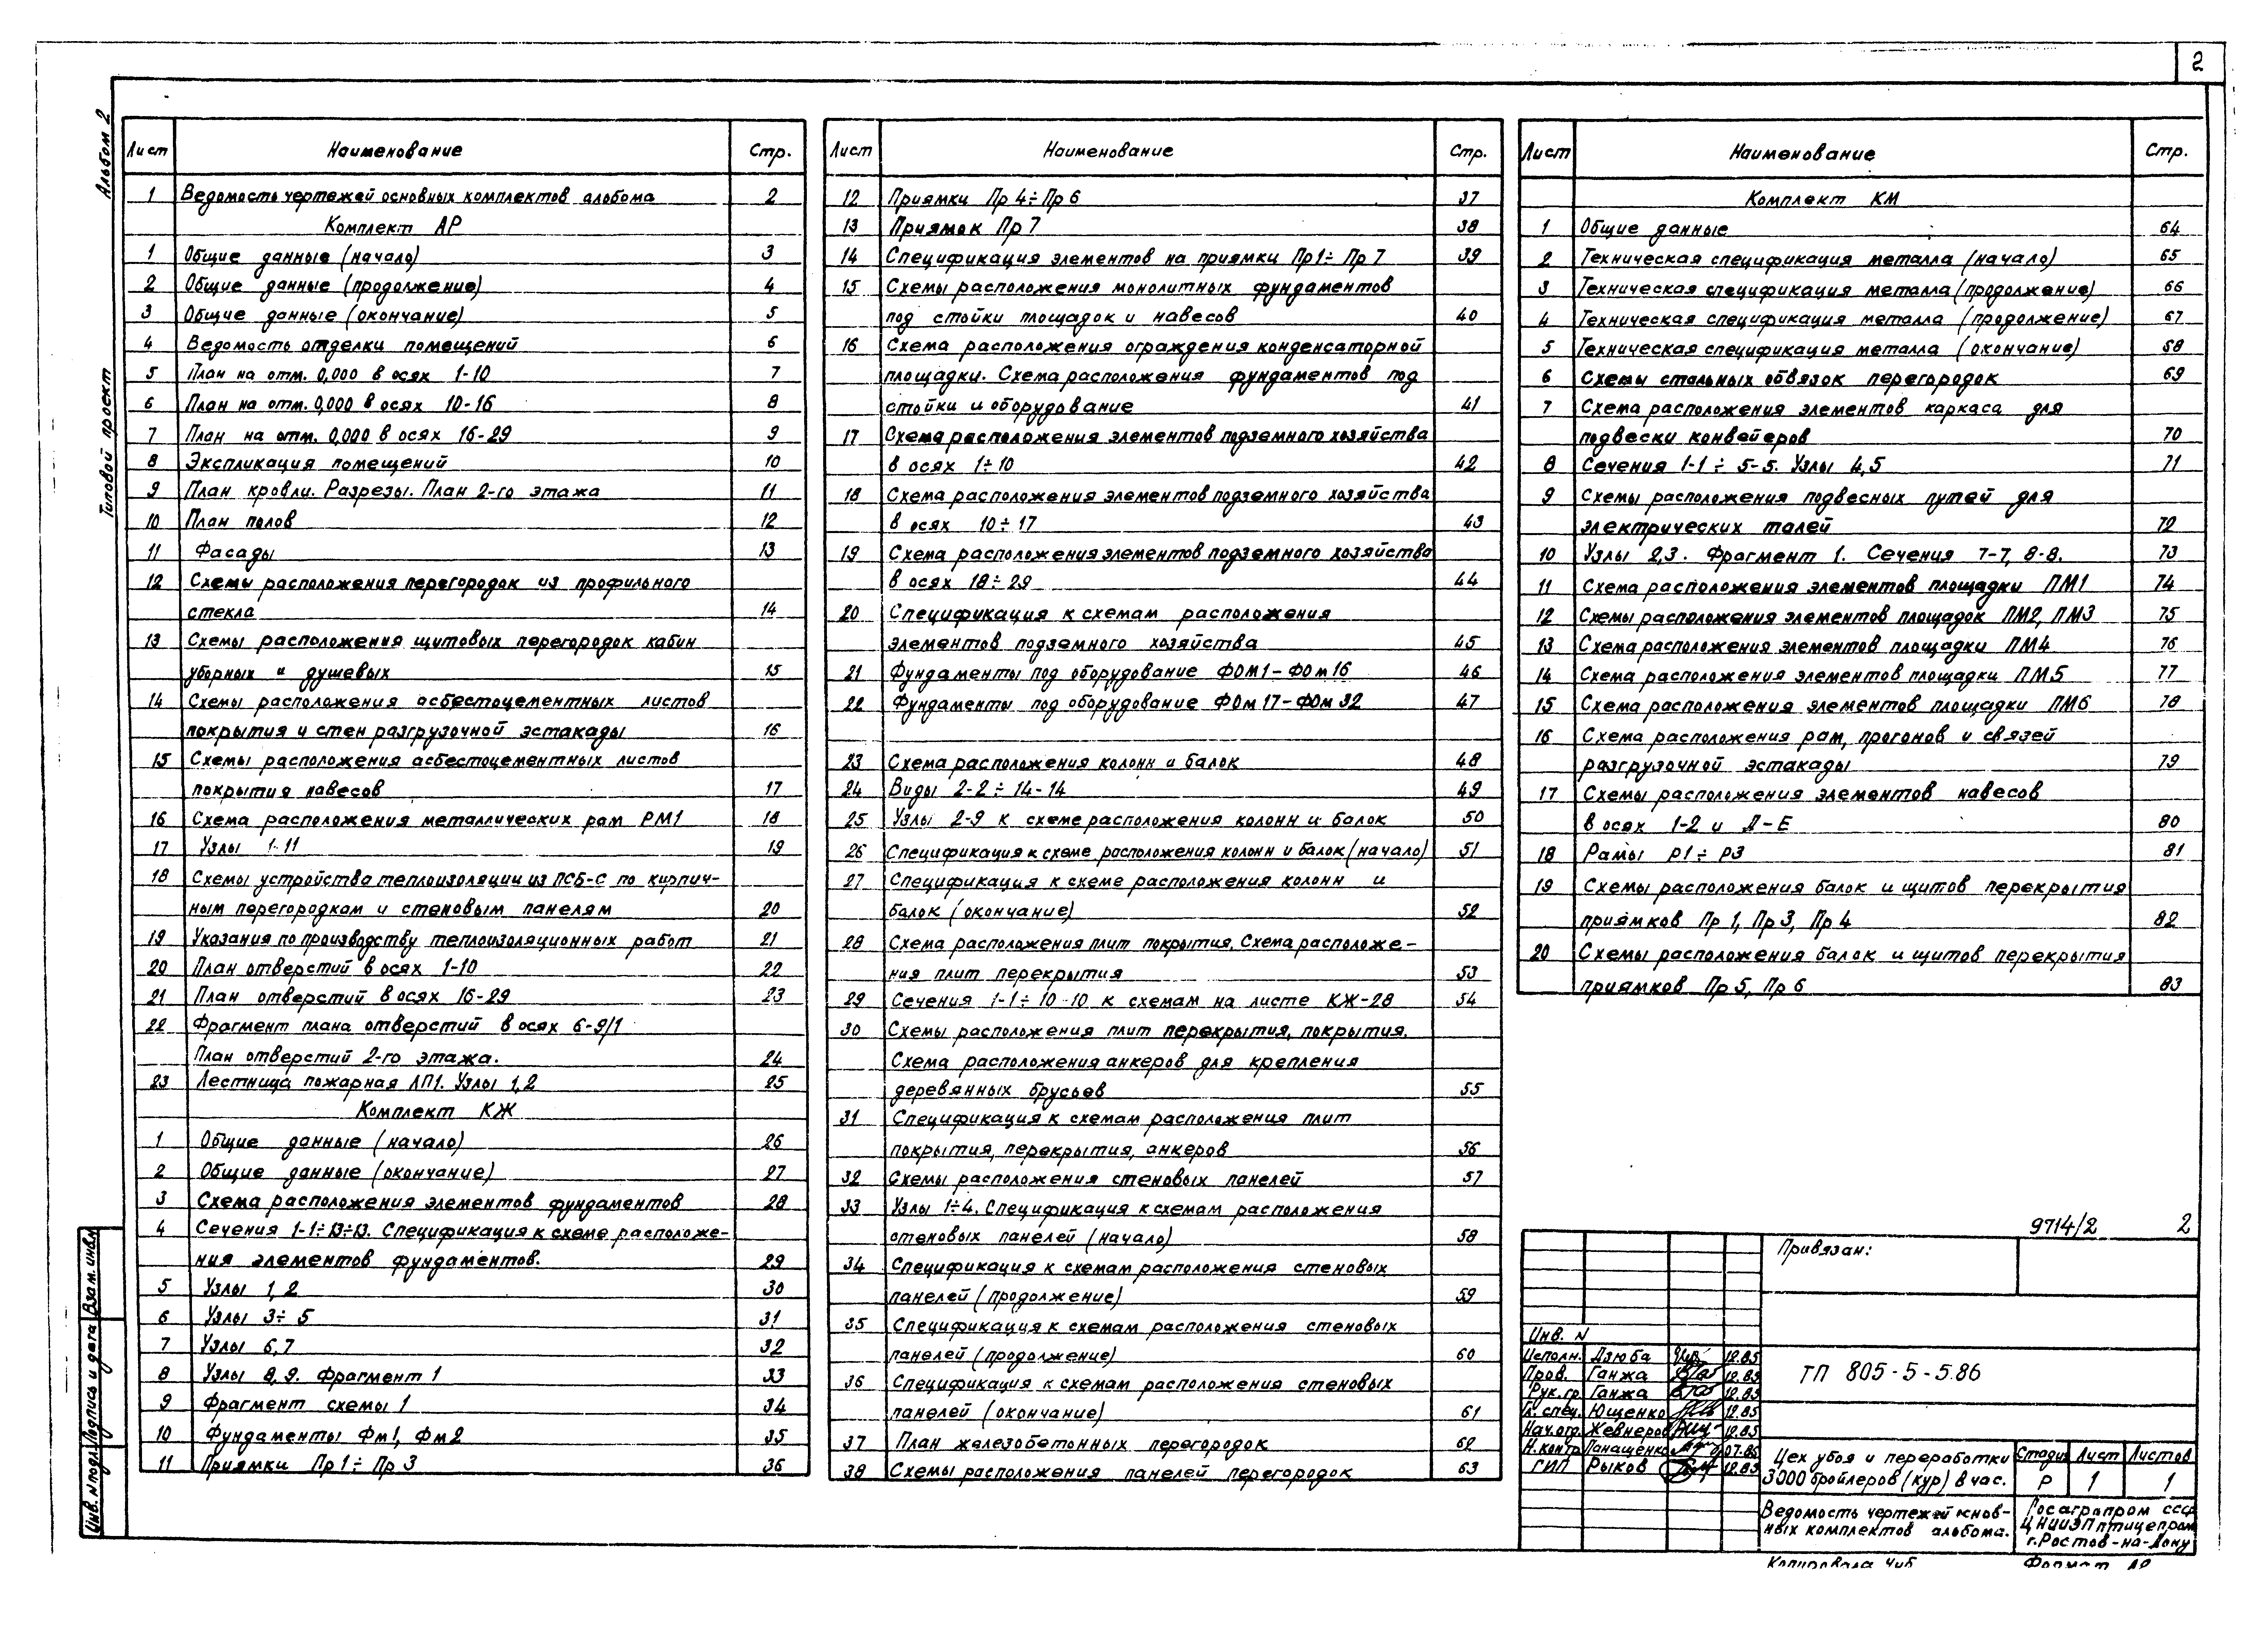 2
Альбом 2
Типовой проект
Лист Наименование Стр.
1 Ведомость чертежей основных комплектов альбома 2
Комплект АР
1 Общие данные (начало) 3
2 Общие данные (продолжение) 4
3 Общие данные (окончание) 5
4 Ведомость отделки помещений 6
5 План на отм. 0,000 в осях 1-10 7
6 План на отм. 0,000 в осях 10-16 8
7 План на отм. 0,000 в осях 16-29 9
8 Экспликация помещений 10
9 План кровли. Разрезы. План 2-го этажа 11
10 План полов 12
11 Фасады 13
12 Схемы расположения перегородок из профильного
стекла 14
13 Схемы расположения щитовых перегородок кабин
уборных и душевых 15
14 Схемы расположения асбестоцементных листов
покрытия и стен разгрузочной эстакады 16
15 Схемы расположения асбестоцементных листов
покрытия навесов 17
16 Схема расположения металлических рам РМ1 18
17 Узлы 1-11 19
18 Схемы устройства теплоизоляции из ПСБ-С по кирпич-
ным перегородкам и стеновым панелям 20
19 Указания по производству теплоизоляционных работ 21
20 План отверстий в осях 1-10 22
21 План отверстий в осях 16-29 23
22 Фрагмент плана отверстий в осях 6-9/1
План отверстий 2-го этажа. 24
23 Лестница пожарная ЛП1. Узлы 1,2 25
Комплект КЖ
1 Общие данные (начало) 26
2 Общие данные (окончание) 27
3 Схема расположения элементов фундаментов 28
4 Сечения 1-1÷13÷13. Спецификация к схеме расположе-
ния элементов фундаментов. 29
5 Узлы 1,2 30
6 Узлы 3÷5 31
7 Узлы 6,7 32
8 Узлы 8,9. Фрагмент 1 33
9 Фрагмент схемы 1 34
10 Фундаменты Фм1, Фм2 35
11 Приямки Пр1÷Пр3 36
Лист Наименование Стр.
12 Приямки Пр4÷Пр6 37
13 Приямок Пр7 38
14 Спецификация элементов на приямки Пр1÷Пр7 39
15 Схемы расположения монолитных фундаментов
под стойки площадок и навесов 40
16 Схема расположения ограждения конденсаторной
площадки. Схема расположения фундаментов под
стойки и оборудование 41
17 Схема расположения элементов подземного хозяйства
в осях 1÷10 42
18 Схема расположения элементов подземного хозяйства
в осях 10÷17 43
19 Схема расположения элементов подземного хозяйства
в осях 18÷29 44
20 Спецификация к схемам расположения
элементов подземного хозяйства 45
21 Фундаменты под оборудование ФОм1-ФОм16 46
22 Фундаменты под оборудование ФОм17-ФОм32 47
23 Схема расположения колонн и балок 48
24 Виды 2-2÷14-14 49
25 Узлы 2-9 к схеме расположения колонн и балок 50
26 Спецификация к схеме расположения колонн и балок (начало) 51
27 Спецификация к схеме расположения колонн и
балок (окончание) 52
28 Схема расположения плит покрытия. Схема расположе-
ния плит перекрытия 53
29 Сечения 1-1÷10-10 к схемам на листе КЖ-28 54
30 Схемы расположения плит перекрытия, покрытия.
Схема расположения анкеров для крепления
деревянных брусьев 55
31 Спецификация к схемам расположения плит
покрытия, перекрытия, анкеров 56
32 Схемы расположения стеновых панелей 57
33 Узлы 1÷4. Спецификация к схемам расположения
стеновых панелей (начало) 58
34 Спецификация к схемам расположения стеновых
панелей (продолжение) 59
35 Спецификация к схемам расположения стеновых
панелей (продолжение) 60
36 Спецификация к схемам расположения стеновых
панелей (окончание) 61
37 План железобетонных перегородок 62
38 Схемы расположения панелей перегородок 63
Лист Наименование Стр.
Комплект КМ
1 Общие данные 64
2 Техническая спецификация металла (начало) 65
3 Техническая спецификация металла (продолжение) 66
4 Техническая спецификация металла (продолжение) 67
5 Техническая спецификация металла (окончание) 68
6 Схемы стальных обвязок перегородок 69
7 Схема расположения элементов каркаса для
подвески конвейеров 70
8 Сечения 1-1÷5-5. Узлы 4,5 71
9 Схемы расположения подвесных путей для
электрических талей 72
10 Узлы 2,3. Фрагмент 1. Сечения 7-7, 8-8. 73
11 Схема расположения элементов площадки ПМ1 74
12 Схемы расположения элементов площадок ПМ2, ПМ3 75
13 Схема расположения элементов площадки ПМ4 76
14 Схема расположения элементов площадки ПМ5 77
15 Схема расположения элементов площадки ПМ6 78
16 Схема расположения рам, прогонов и связей
разгрузочной эстакады 79
17 Схемы расположения элементов навесов
в осях 1-2 и Д-Е 80
18 Рамы Р1÷Р3 81
19 Схемы расположения балок и щитов перекрытия
приямков Пр1, Пр3, Пр4 82
20 Схемы расположения балок и щитов перекрытия
приямков Пр5, Пр6 83
9714/2 2
Привязан:
Инв. N
Исполн. Дзюба 12.85
Пров. Ганжа 12.85
Рук.гр. Ганжа 12.85
Гл. спец. Ющенко 12.85
Нач.отд. Жевнеров 12.85
Н.контр Панащенко 07.86
ГИП Рыков 12.85
ТП 805-5-5.86
Цех убоя и переработки
3000 бройлеров (кур) в час.
Стадия Лист Листов
Р 1 1
Ведомость чертежей основ-
ных комплектов альбома.
Госагропром СССР
ЦНИИЭПптицепром
г.Ростов-на-Дону
Копировала
Формат А2
Инв. N подл. Подпись и дата Взам. инв. N